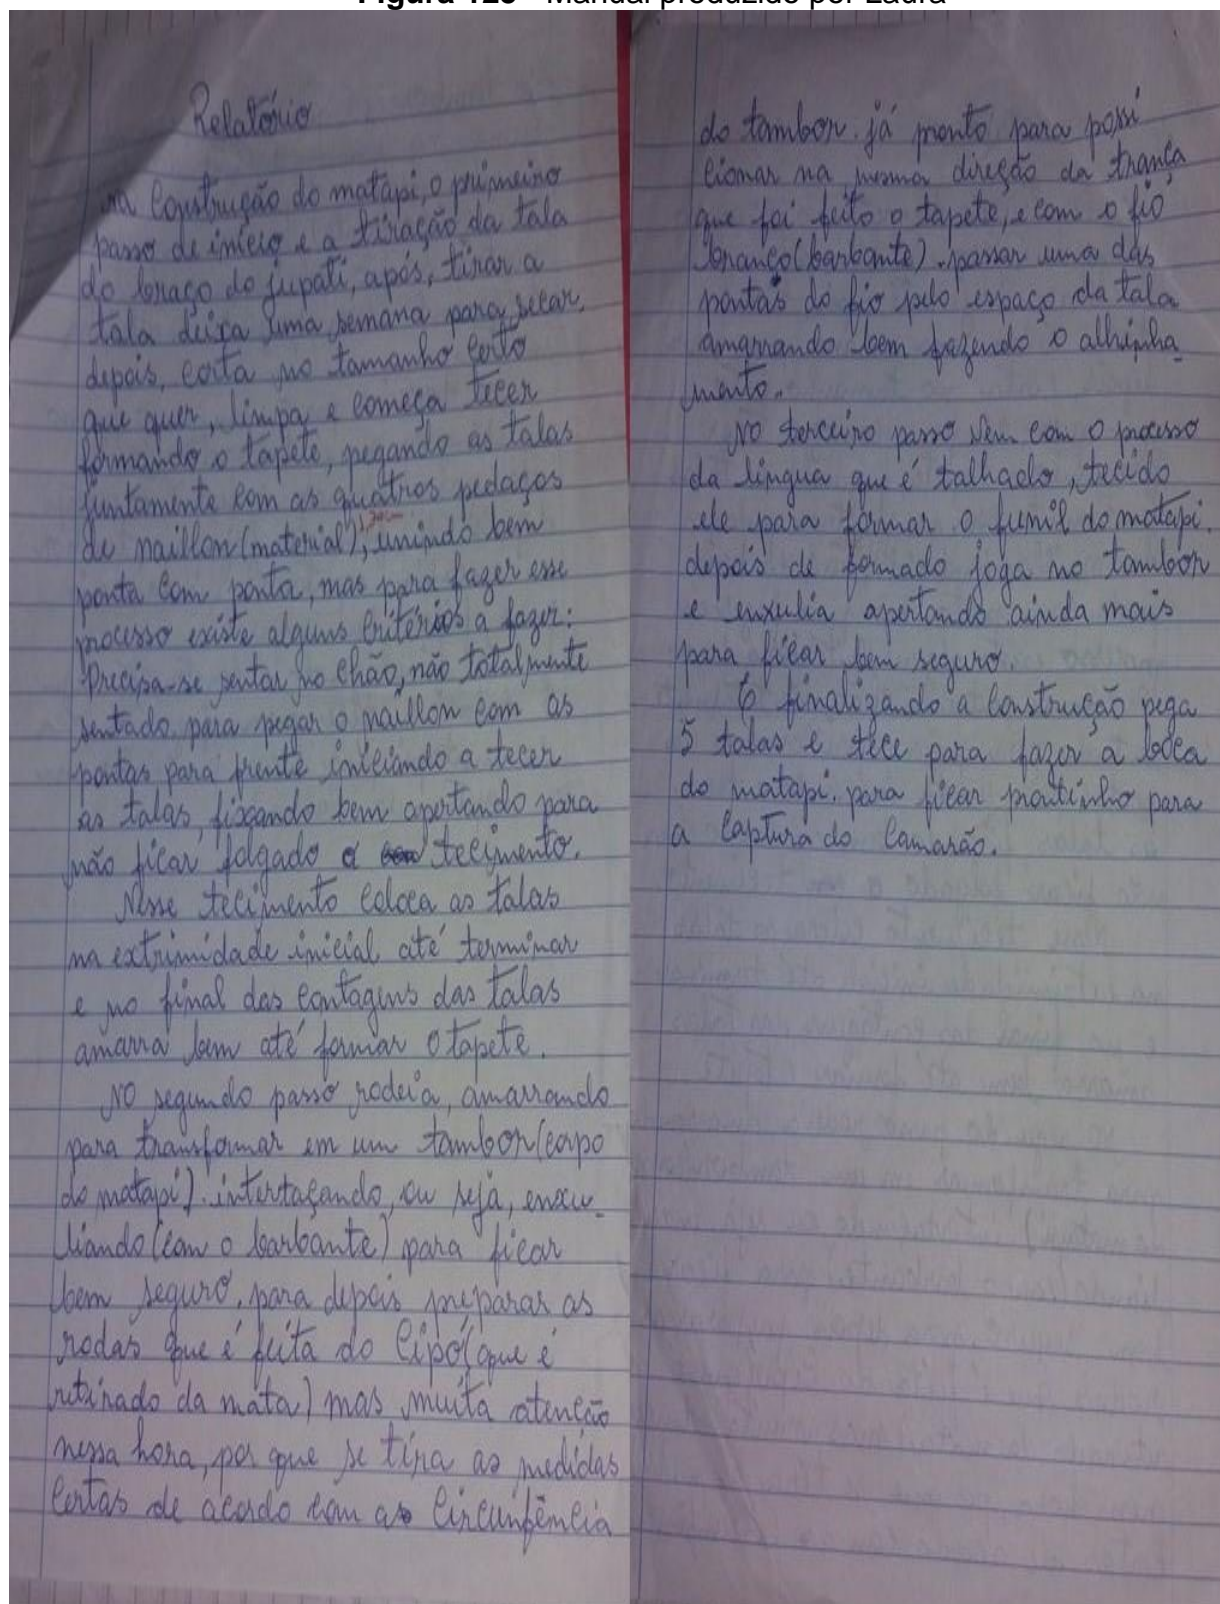 Manual produzido por Laura
Relatório
na Construção do matapi, o primeiro
passo de início é a tiração da tala
do braço do jupati, após, tirar a
tala deixa uma semana para secar,
depois, corta no tamanho certo
que quer, limpa e começa tecer
formando o tapete, pegando as talas
juntamente com as quatros pedaços
de naillon (material), unindo bem
ponta com ponta, mas para fazer esse
processo existe alguns critérios a fazer:
Precisa-se sentar no chão, não totalmente
sentado para pegar o naillon com as
pontas para frente iniciando a tecer
as talas, fixando bem apertando para
não ficar folgado o tecimento.
Nesse tecimento coloca as talas
na extrimidade inicial até terminar
e no final das contagens das talas
amarra bem até formar o tapete.
No segundo passo rodeia, amarrando
para transformar em um tambor (corpo
do matapi). intertaçando, ou seja, enxu-
liando (com o barbante) para ficar
bem seguro, para depois preparar as
rodas que é feita do Cipó (que é
retirado da mata) mas muita atenção
nessa hora, por que se tira as medidas
Certas de acordo com as Circunfência
do tambor. já pronto para possi
cionar na mesma direção da trança
que foi feito o tapete, e com o fio
branco (barbante). passar uma das
pontas do fio pelo espaço da tala
amarrando bem fazendo o alhinha_
mento.
No terceiro passo vem com o processo
da língua que é talhado, tecido
ele para formar o funil do matapi.
depois de formado joga no tambor
e enxulia apertando ainda mais
para ficar bem seguro.
E finalizando a construção pega
5 talas e tece para fazer a boca
do matapi. para ficar prontinho para
a Captura do Camarão.